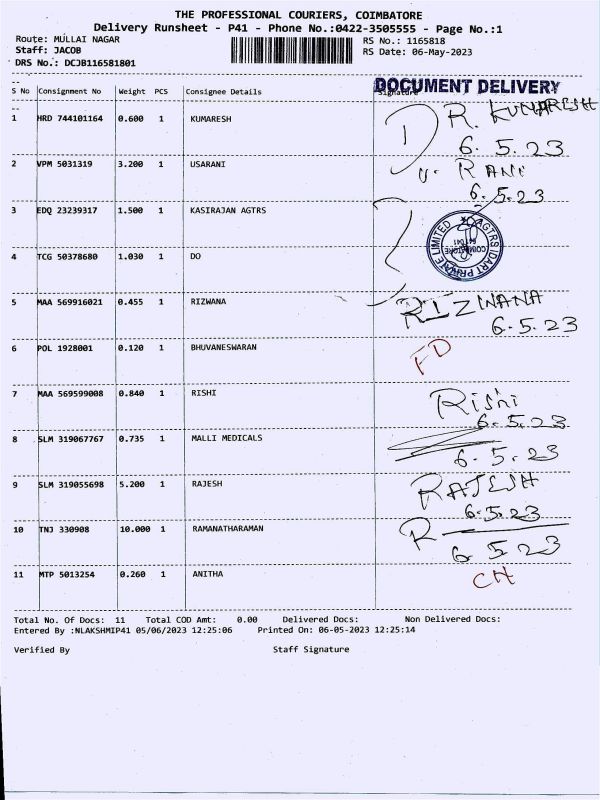 THE PROFESSIONAL COURIERS, COIMBATORE
Delivery Runsheet - P41 - Phone No.:0422-3505555 - Page No.:1
Route: MULLAI NAGAR RS No.: 1165818
Staff: JACOB RS Date: 06-May-2023
DRS No.: DCJB116581801
DOCUMENT DELIVERY
S No Consignment No Weight PCS Consignee Details Signature
1 HRD 744101164 0.600 1 KUMARESH R. KUMARESH
6.5.23
2 VPM 5031319 3.200 1 USARANI U. RANI
6.5.23
3 EDQ 23239317 1.500 1 KASIRAJAN AGTRS
AGTRS IDART PRIVATE LIMITED
COIMBATORE
641 041
4 TCG 50378680 1.030 1 DO
5 MAA 569916021 0.455 1 RIZWANA RIZWANA
6.5.23
6 POL 1928001 0.120 1 BHUVANESWARAN FD
7 MAA 569599008 0.840 1 RISHI Rishi
6.5.23
8 SLM 319067767 0.735 1 MALLI MEDICALS 6.5.23
9 SLM 319055698 5.200 1 RAJESH RAJESH
6.5.23
10 TNJ 330908 10.000 1 RAMANATHARAMAN R
6.5.23
11 MTP 5013254 0.260 1 ANITHA CH
Total No. Of Docs: 11 Total COD Amt: 0.00 Delivered Docs: Non Delivered Docs:
Entered By :NLAKSHMIP41 05/06/2023 12:25:06 Printed On: 06-05-2023 12:25:14
Verified By Staff Signature